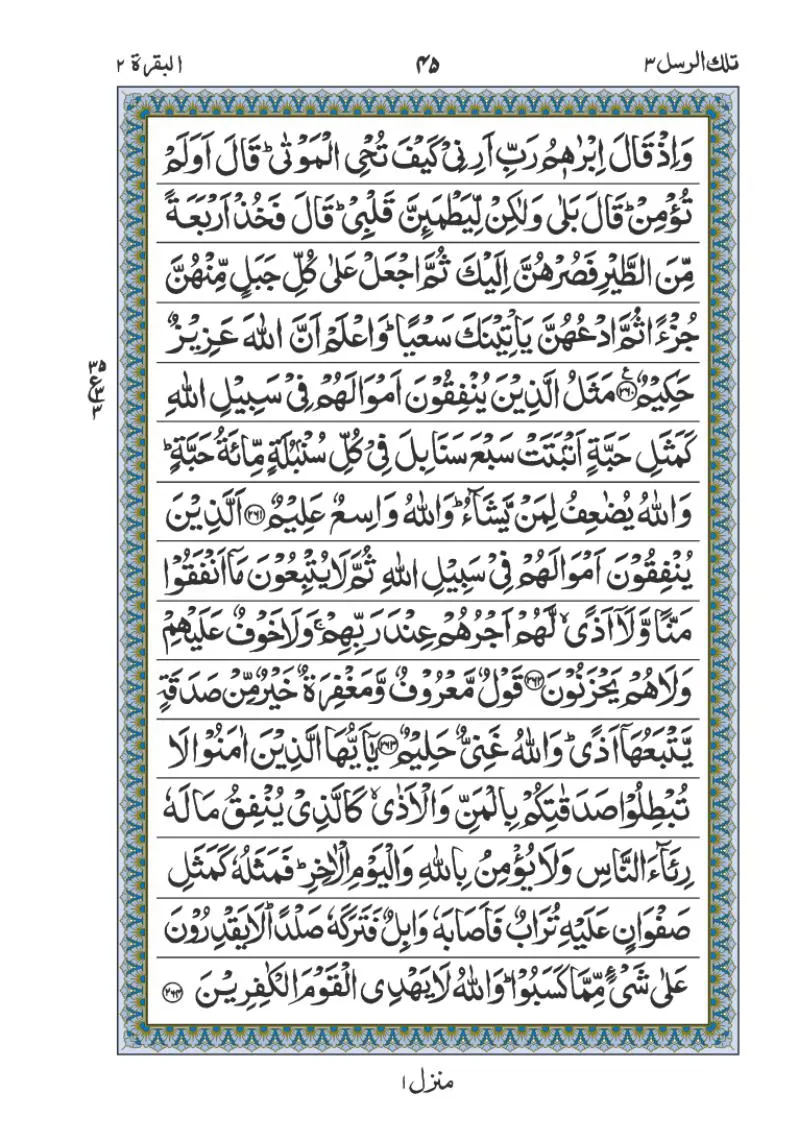 تلك الرسل ۳
۴۵
البقرة ۲
وَاِذْ قَالَ اِبْرٰهٖمُ رَبِّ اَرِنِیْ كَیْفَ تُحْیِ الْمَوْتٰیؕ قَالَ اَوَلَمْ
تُؤْمِنْؕ قَالَ بَلٰی وَلٰكِنْ لِّیَطْمَىِٕنَّ قَلْبِیْؕ قَالَ فَخُذْ اَرْبَعَةً
مِّنَ الطَّیْرِ فَصُرْهُنَّ اِلَیْكَ ثُمَّ اجْعَلْ عَلٰی كُلِّ جَبَلٍ مِّنْهُنَّ
جُزْءًا ثُمَّ ادْعُهُنَّ یَاْتِیْنَكَ سَعْیًاؕ وَاعْلَمْ اَنَّ اللّٰهَ عَزِیْزٌ
حَكِیْمٌ ﴿۲۶۰﴾ ع مَثَلُ الَّذِیْنَ یُنْفِقُوْنَ اَمْوَالَهُمْ فِیْ سَبِیْلِ اللّٰهِ
۳۵
ع
۳
۳
كَمَثَلِ حَبَّةٍ اَنْۢبَتَتْ سَبْعَ سَنَابِلَ فِیْ كُلِّ سُنْۢبُلَةٍ مِّائَةُ حَبَّةٍؕ
وَاللّٰهُ یُضٰعِفُ لِمَنْ یَّشَآءُؕ وَاللّٰهُ وَاسِعٌ عَلِیْمٌ ﴿۲۶۱﴾ اَلَّذِیْنَ
یُنْفِقُوْنَ اَمْوَالَهُمْ فِیْ سَبِیْلِ اللّٰهِ ثُمَّ لَا یُتْبِعُوْنَ مَاۤ اَنْفَقُوْا
مَنًّا وَّلَاۤ اَذًیۙ لَّهُمْ اَجْرُهُمْ عِنْدَ رَبِّهِمْۚ وَلَا خَوْفٌ عَلَیْهِمْ
وَلَا هُمْ یَحْزَنُوْنَ ﴿۲۶۲﴾ قَوْلٌ مَّعْرُوْفٌ وَّمَغْفِرَةٌ خَیْرٌ مِّنْ صَدَقَةٍ
یَّتْبَعُهَاۤ اَذًیؕ وَاللّٰهُ غَنِیٌّ حَلِیْمٌ ﴿۲۶۳﴾ یٰۤاَیُّهَا الَّذِیْنَ اٰمَنُوْا لَا
تُبْطِلُوْا صَدَقٰتِكُمْ بِالْمَنِّ وَالْاَذٰیۙ كَالَّذِیْ یُنْفِقُ مَالَهٗ
رِئَآءَ النَّاسِ وَلَا یُؤْمِنُ بِاللّٰهِ وَالْیَوْمِ الْاٰخِرِؕ فَمَثَلُهٗ كَمَثَلِ
صَفْوَانٍ عَلَیْهِ تُرَابٌ فَاَصَابَهٗ وَابِلٌ فَتَرَكَهٗ صَلْدًاؕ لَا یَقْدِرُوْنَ
عَلٰی شَیْءٍ مِّمَّا كَسَبُوْاؕ وَاللّٰهُ لَا یَهْدِی الْقَوْمَ الْكٰفِرِیْنَ ﴿۲۶۴﴾
منزل ۱